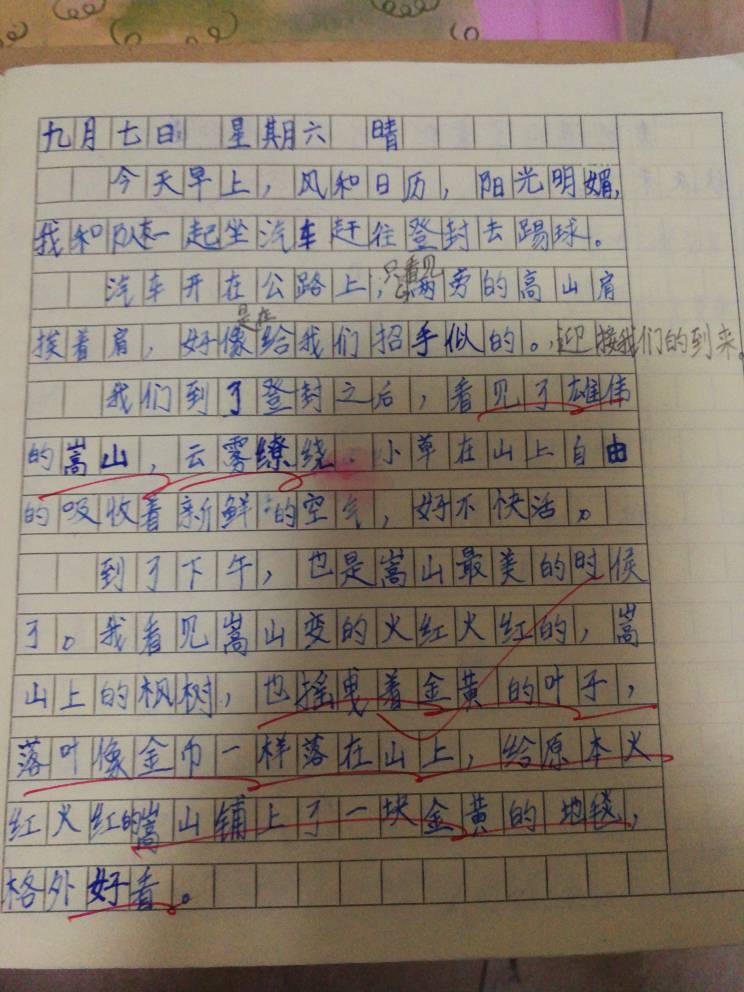 九月七日 星期六 晴
今天早上，风和日历，阳光明媚，
我和队一起坐汽车赶往登封去踢球。
汽车开在公路上，只看见两旁的高山肩
挨着肩，好像是在给我们招手似的。迎接我们的到来。
我们到了登封之后，看见了雄伟
的嵩山，云雾缭绕．小草在山上自由
的吸收着新鲜的空气，好不快活。
到了下午，也是嵩山最美的时候
了。我看见嵩山变的火红火红的，嵩
山上的枫树，也摇曳着金黄的叶子，
落叶像金币一样落在山上，给原本火
红火红的嵩山铺上了一块金黄的地毯，
格外好看。